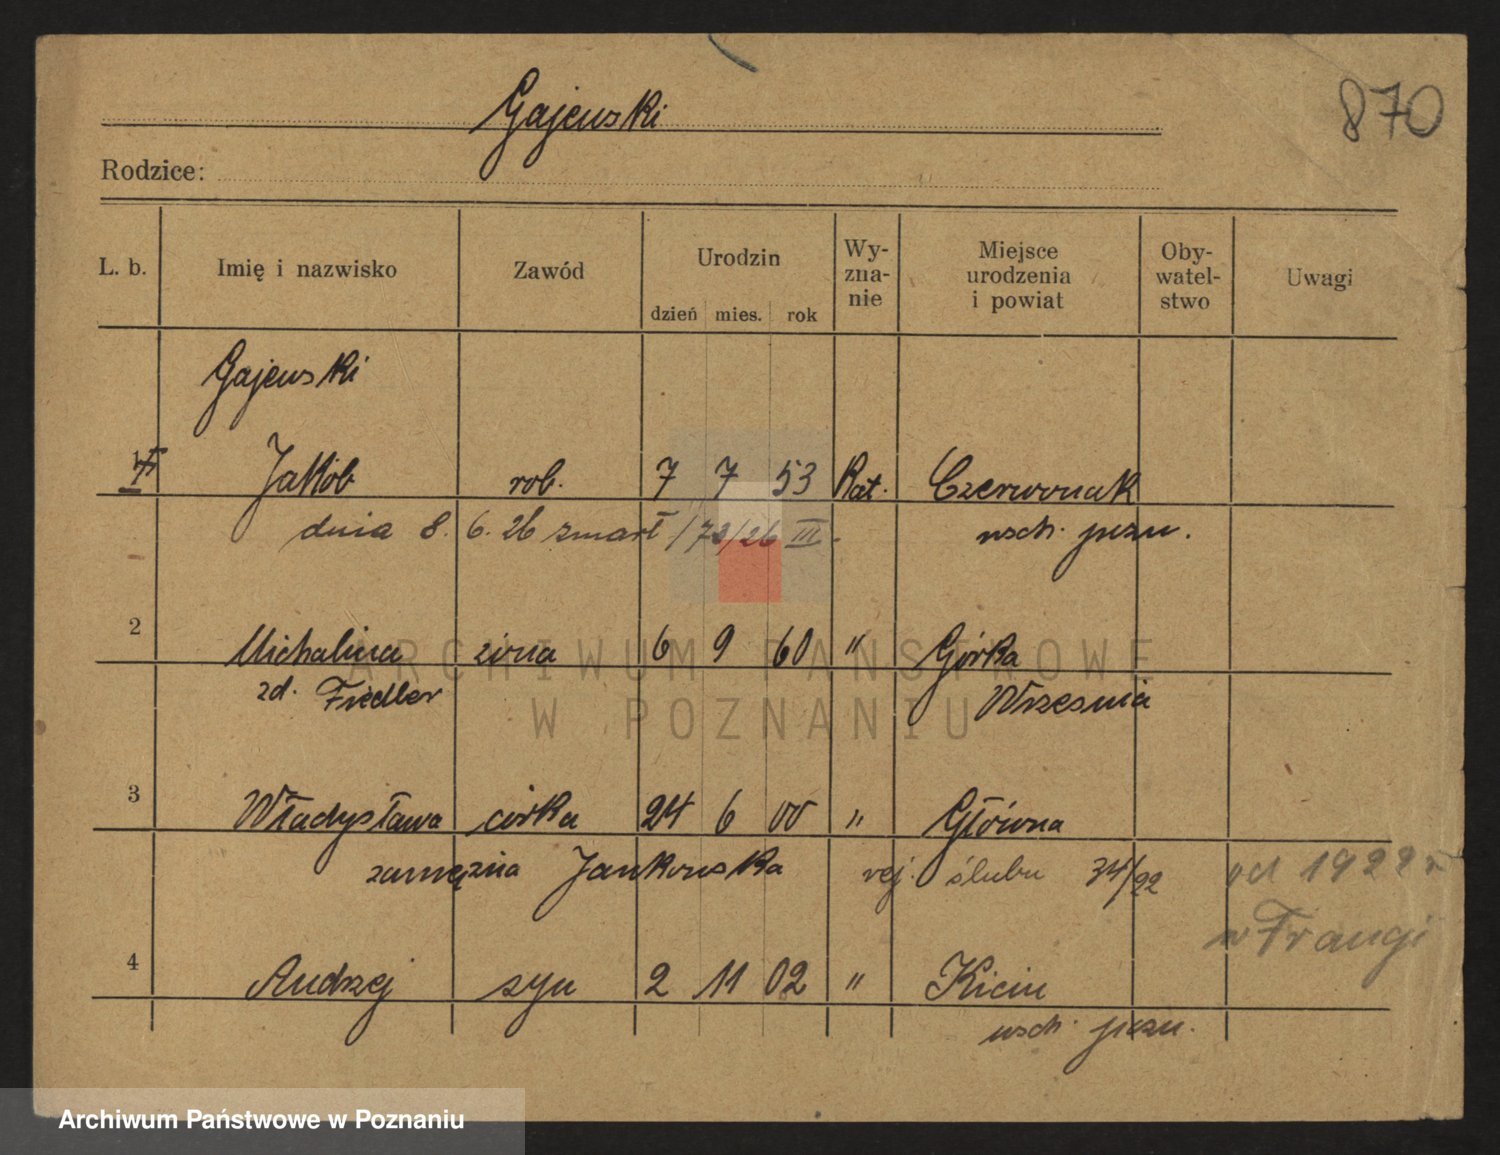 870
Gajewski
Rodzice:
L. b. Imię i nazwisko Zawód Urodzin dzień mies. rok Wy-zna-nie Miejsce urodzenia i powiat Oby-watel-stwo Uwagi
Gajewski
1 Jakób rob. 7 7 53 Kat. Czerwonak
dnia 8. 6. 26 zmarł /73/26 III. wsch. pozn.
2 Michalina żona 6 9 60 " Górka
zd. Fiedler Września
3 Władysława córka 24 6 00 " Główna
zamężna Jankowska rej. ślubu 34/22 od 1922 r
w Francji
4 Andrzej syn 2 11 02 " Kicin
wsch. pozn.
ARCHIWUM PAŃSTWOWE
W POZNANIU
Archiwum Państwowe w Poznaniu